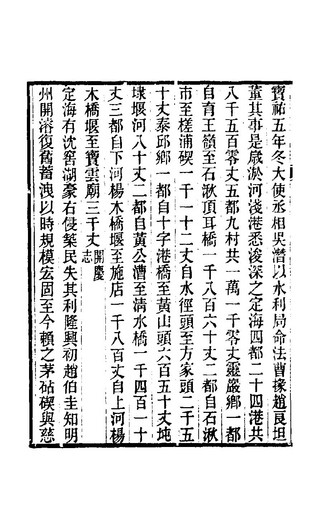 寶祐五年冬大使丞相吳潛以水利局命法曹掾趙良坦
董其事是歲淤河淺港悉浚深之定海四都二十四港共
八千五百零丈五都九村共一萬一千零丈靈巖鄉一都
自育王嶺至石湫頂耳橋一千八百六十丈二都自石湫
市至槎浦碶一千一十二丈自水徑頭至方家頭二千五
十丈泰邱鄉一都自十字港橋至黄山頭六百五十丈坉
堎堰河八十丈二都自黄公漕至清水橋一千四百一十
丈三都自下河楊木橋堰至施店一千八百丈自上河楊
木橋堰至寶雲廟三千丈開慶志
定海有沈窖湖豪右侵築民失其利隆興初趙伯圭知明
州開溶復舊蓄洩以時規模宏固至今賴之茅砧碶與慈